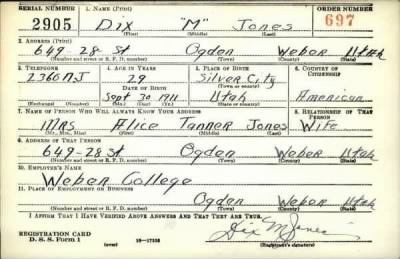 SERIAL NUMBER 1. NAME (Print) ORDER NUMBER
2905 Dix "M" Jones 697
(First) (Middle) (Last)
2. ADDRESS (Print)
649 - 28 St Ogden Weber Utah
(Number and street or R. F. D. number) (Town) (County) (State)
3. TELEPHONE 4. AGE IN YEARS 5. PLACE OF BIRTH 6. COUNTRY OF CITIZENSHIP
2366 NJ 29 Silver City
DATE OF BIRTH (Town or county)
Sept 30 1911 Utah American
(Exchange) (Number) (Mo.) (Day) (Yr.) (State or country)
7. NAME OF PERSON WHO WILL ALWAYS KNOW YOUR ADDRESS 8. RELATIONSHIP OF THAT PERSON
Mrs Alice Tanner Jones Wife
(Mr., Mrs., Miss) (First) (Middle) (Last)
9. ADDRESS OF THAT PERSON
649 - 28 St Ogden Weber Utah
(Number and street or R. F. D. number) (Town) (County) (State)
10. EMPLOYER'S NAME
Weber College
11. PLACE OF EMPLOYMENT OR BUSINESS
Ogden Weber Utah
(Number and street or R. F. D. number) (Town) (County) (State)
I AFFIRM THAT I HAVE VERIFIED ABOVE ANSWERS AND THAT THEY ARE TRUE.
REGISTRATION CARD
D. S. S. Form 1 (over) 16—17105 Dix M Jones
(Registrant's signature)